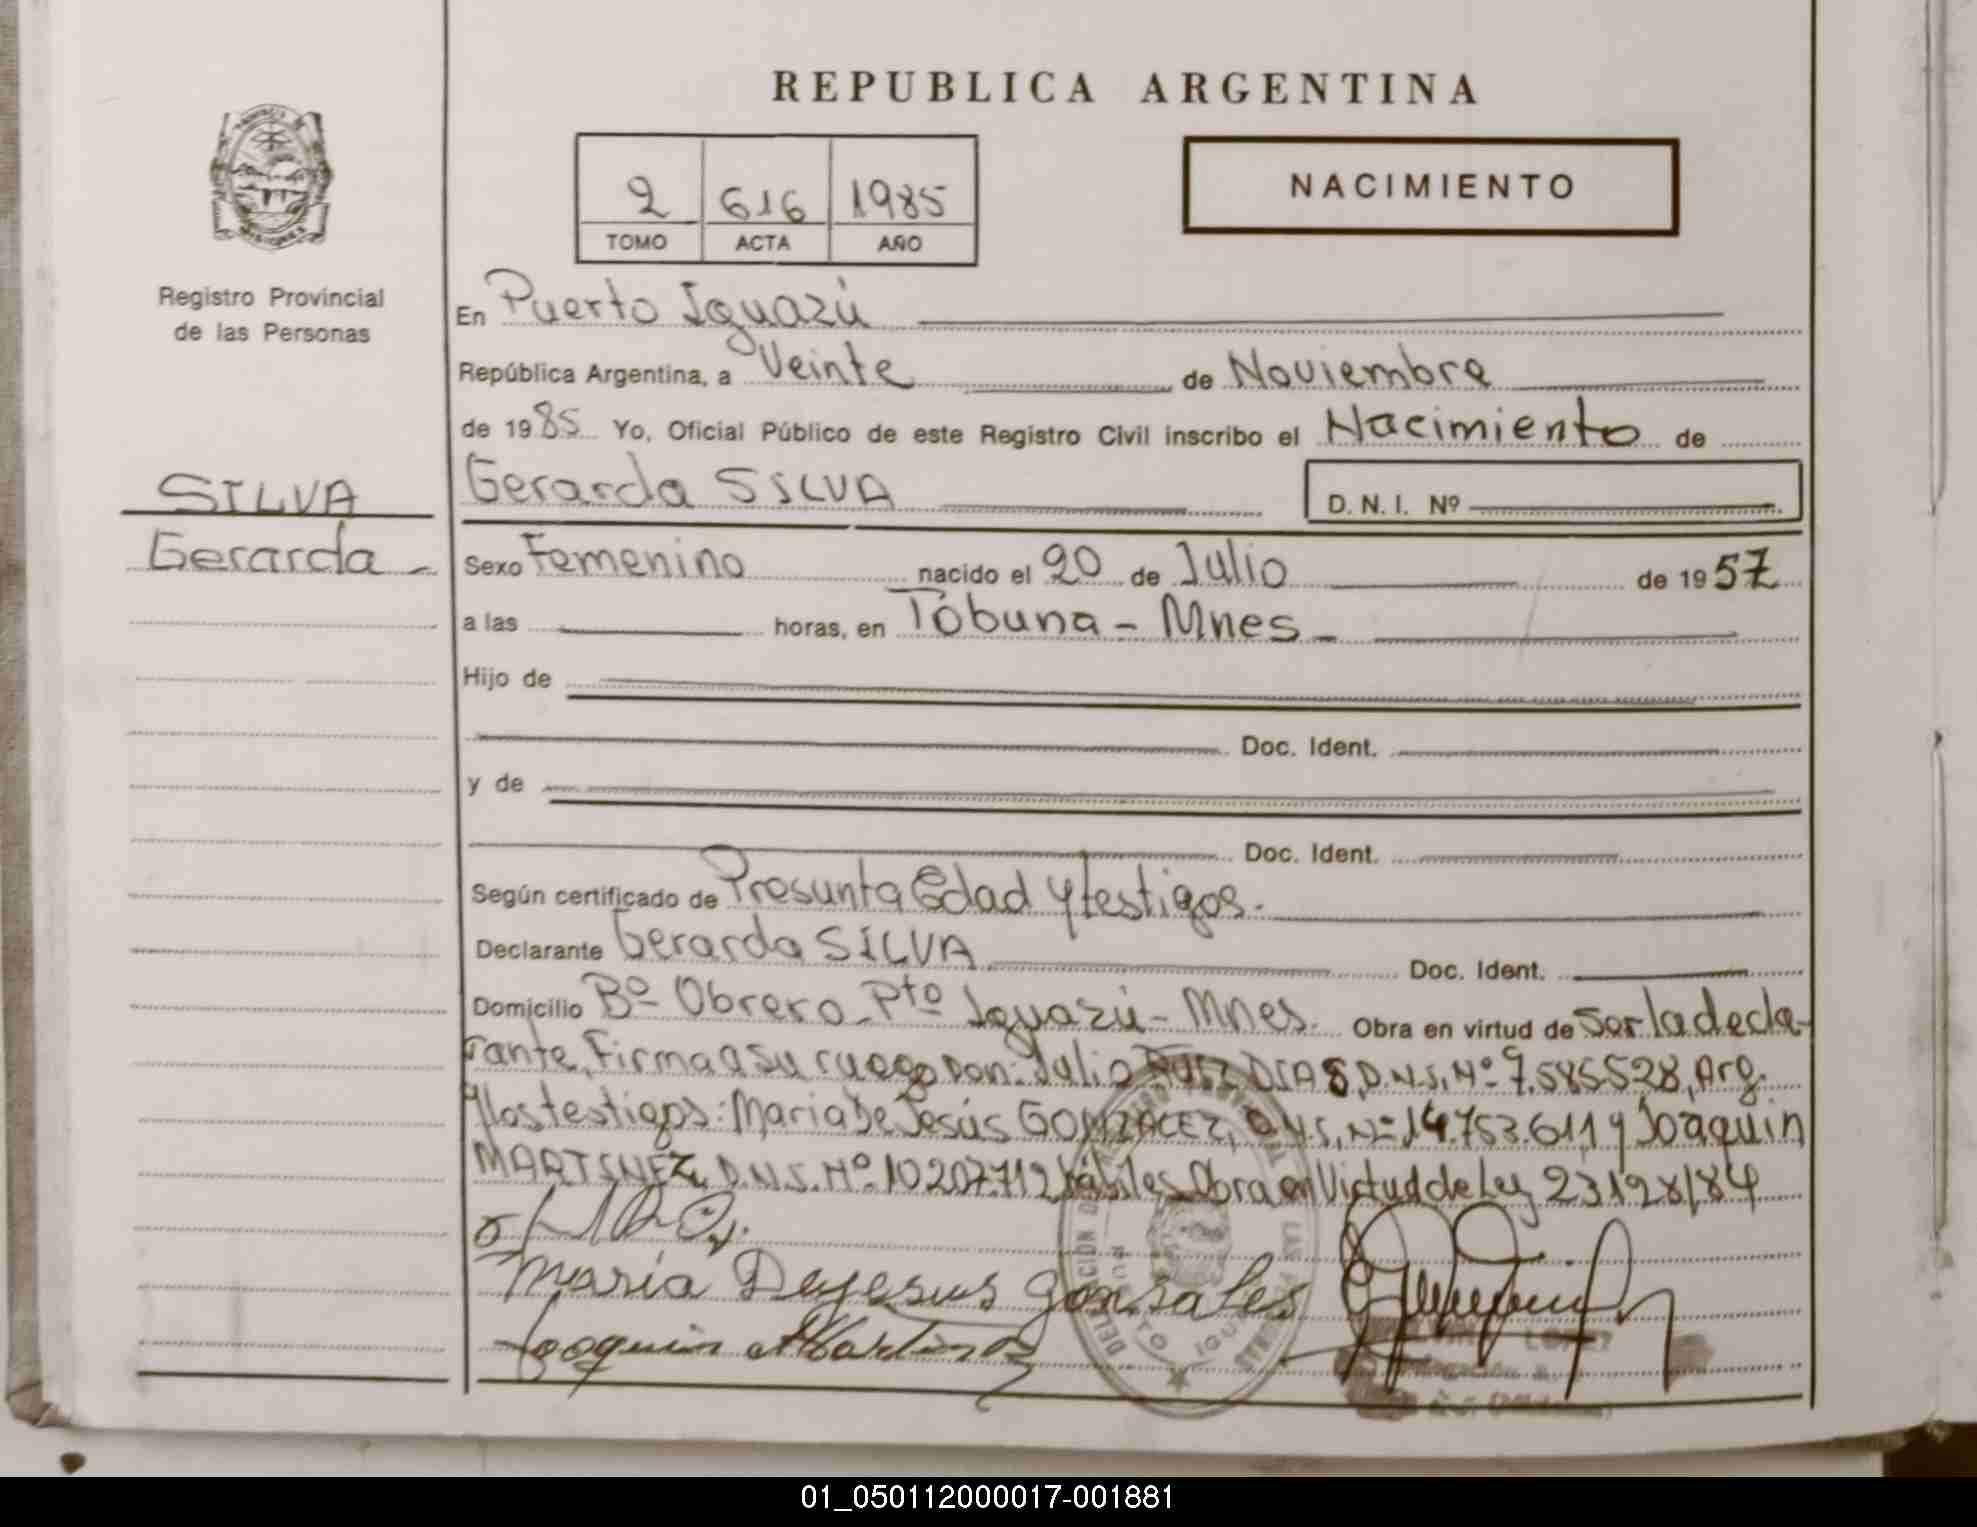 REPUBLICA ARGENTINA
NACIMIENTO
2 616 1985
TOMO ACTA AÑO
Registro Provincial
de las Personas
En Puerto Iguazú
República Argentina, a Veinte de Noviembre
de 1985 Yo, Oficial Público de este Registro Civil inscribo el Nacimiento de
SILVA
Gerarda
Gerarda SILVA D. N. I. Nº
Sexo Femenino nacido el 20 de Julio de 1957
a las horas, en Tobuna - Mnes -
Hijo de
Doc. Ident.
y de
Doc. Ident.
Según certificado de Presunta Edad y testigos.
Declarante Gerarda SILVA Doc. Ident.
Domicilio Bº Obrero - Pto Iguazú - Mnes. Obra en virtud de Ser la decla-
rante, Firma a su ruego Don: Julio DIAS, D.N.I. Nº 7.585528, Arg.
y los testigos: Maria De Jesús GONZALEZ, D.N.I. Nº 14.753.611 y Joaquin
MARTINEZ, D.N.I. Nº 10207.712 hábiles. Obra en Virtud de Ley 23128/84
Maria Dejesus Gonsales
Joaquin Martinez
01_050112000017-001881